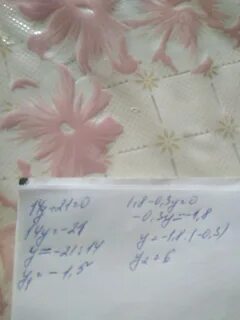 14y+21=0
14y=-21
y=-21:14
y₁=-1,5
1,8-0,3y=0
-0,3y=-1,8
y=-1,8:(-0,3)
y₂=6